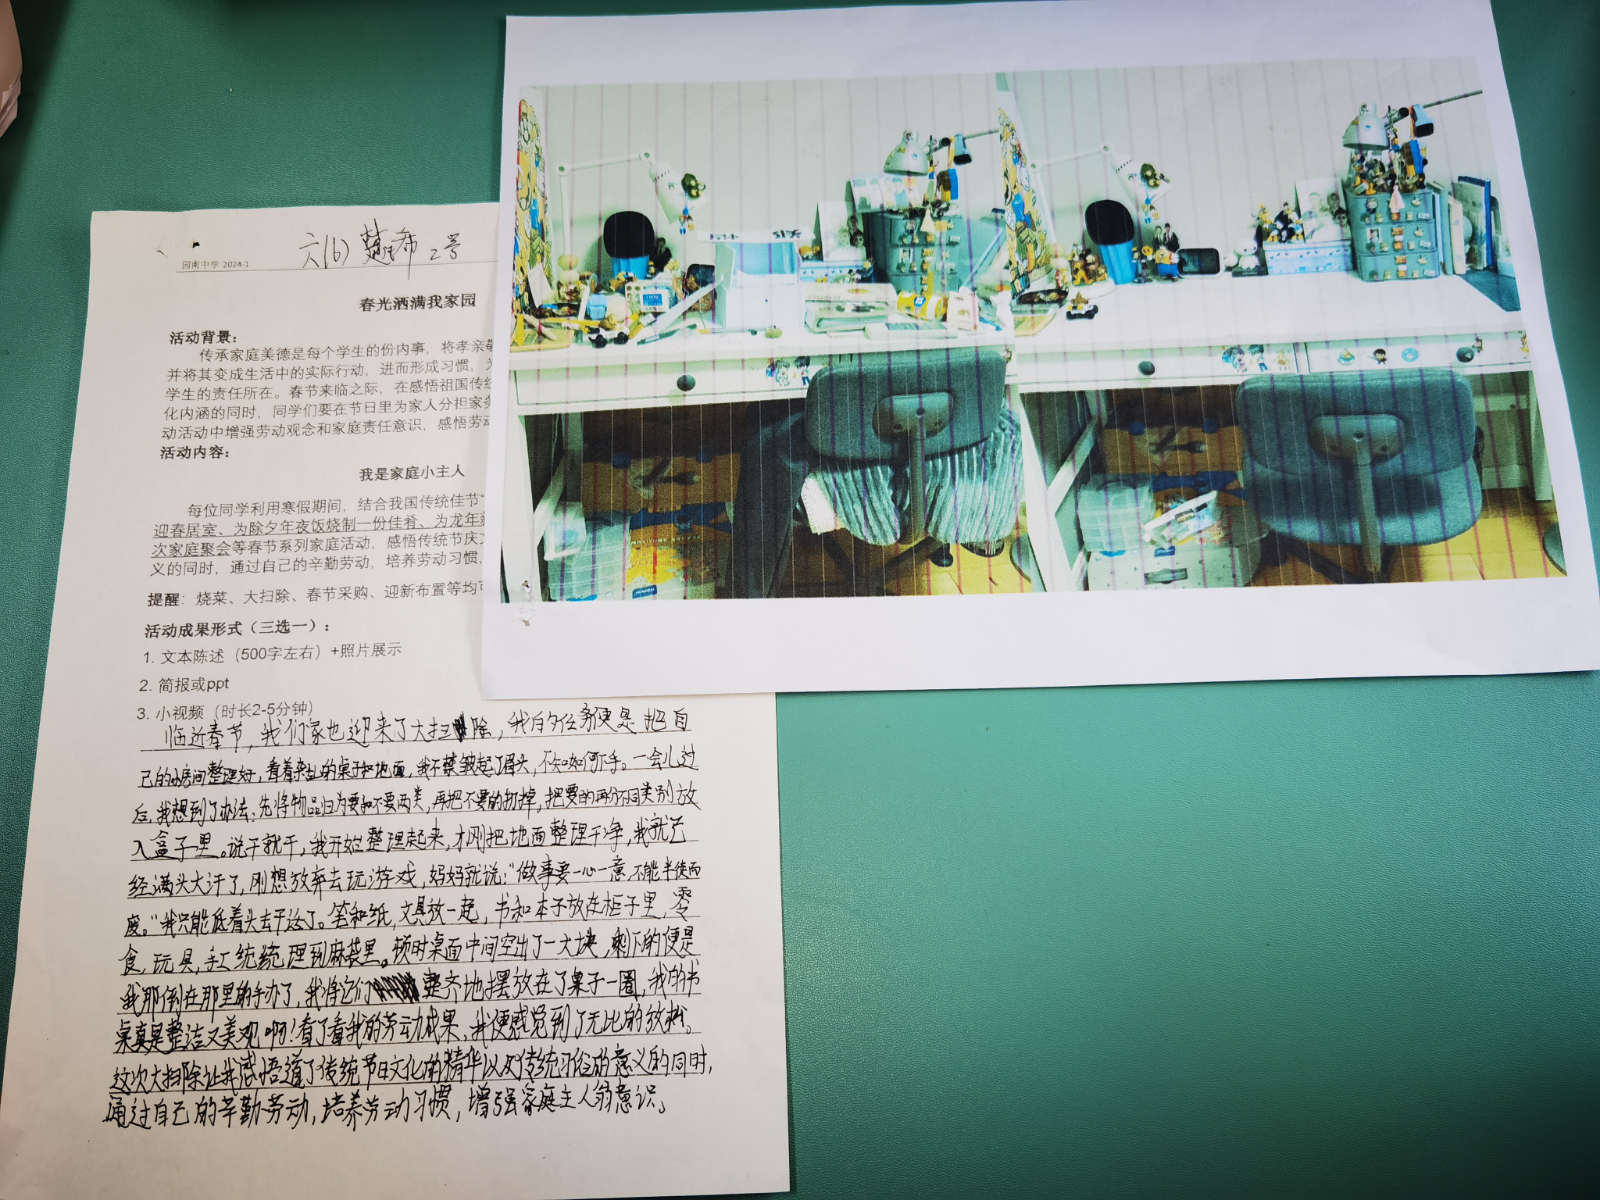 园南中学 2024-1
六(6) 希 2号
春光洒满我家园
活动背景：
传承家庭美德是每个学生的份内事，将孝亲
并将其变成生活中的实际行动，进而形成习惯，
学生的责任所在。春节来临之际，在感悟祖国传统
化内涵的同时，同学们要在节日里为家人分担家务
动活动中增强劳动观念和家庭责任意识，感悟劳动
活动内容：
我是家庭小主人
每位同学利用寒假期间，结合我国传统佳节“
迎春居室、为除夕年夜饭烧制一份佳肴、为龙年
次家庭聚会等春节系列家庭活动，感悟传统节庆文
义的同时，通过自己的辛勤劳动，培养劳动习惯，
提醒：烧菜、大扫除、春节采购、迎新布置等均可
活动成果形式（三选一）：
1. 文本陈述（500字左右）+照片展示
2. 简报或ppt
3. 小视频（时长2-5分钟）
临近春节，我们家也迎来了大扫除，我的任务便是把自
己的房间整理好，看着杂乱的桌子和地面，我不禁皱起了眉头，不知如何下手。一会儿过
后，我想到了办法：先将物品归为要和不要两类，再把不要的扔掉，把要的再分不同类别放
入盒子里。说干就干，我开始整理起来，才刚把地面整理干净，我就已
经满头大汗了，刚想放弃去玩游戏，妈妈就说：“做事要一心一意，不能半途而
废。”我只能低着头去干活了。笔和纸，文具放一起，书和本子放在柜子里，零
食，玩具，手工统统理到麻袋里。顿时桌面中间空出了一大块，剩下的便是
我那倒在那里的手办了，我将它们整齐地摆放在了桌子一圈，我的书
桌真是整洁又美观啊！看了看我的劳动成果，我便感觉到了无比的放松。
这次大扫除让我感悟道了传统节日文化的精华以及传统习俗的意义的同时，
通过自己的辛勤劳动，培养劳动习惯，增强家庭主人翁意识。